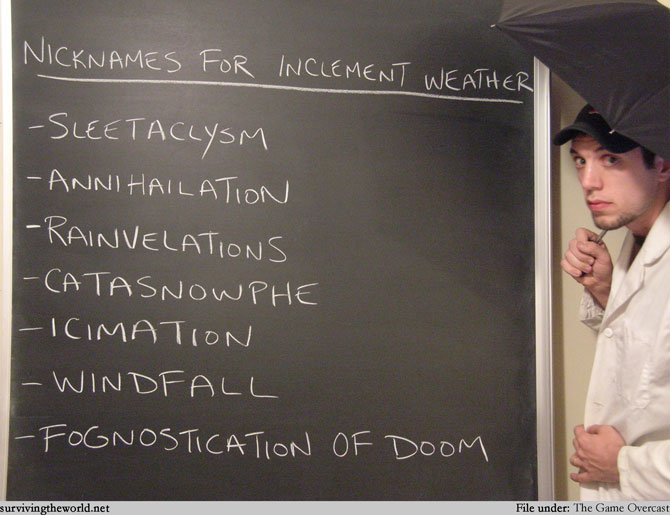 NICKNAMES FOR INCLEMENT WEATHER
- SLEETACLYSM
- ANNIHAILATION
- RAINVELATIONS
- CATASNOWPHE
- ICIMATION
- WINDFALL
- FOGNOSTICATION OF DOOM
survivingtheworld.net File under: The Game Overcast